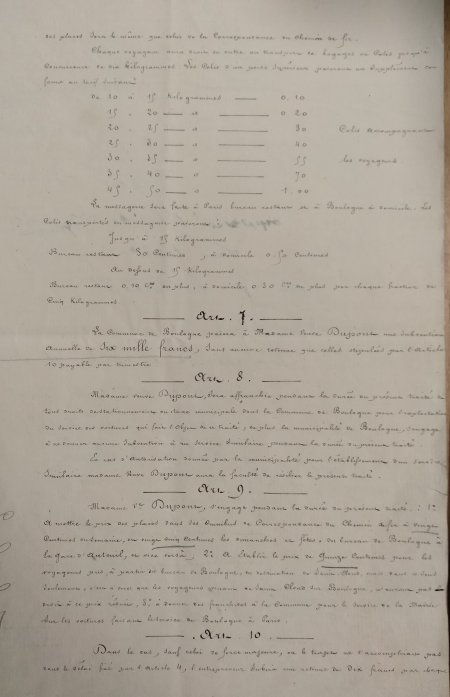 des places sera le même que celui de la Correspondance du Chemin de fer.
Chaque voyageur aura droit en outre au transport de bagages ou Colis jusqu'à
Concurrence de dix Kilogrammes. Les Colis d'un poids supérieur paieront un Supplément con
forme au tarif suivant
de 10 à 15 Kilogrammes — 0.10
15 . 20 — " — 0.20
20 . 25 — " — 30 Colis accompagnant
25 . 30 — " — 40
30 . 35 — " — 55 les voyageurs
35 . 40 — " — 70
45 . 50 — " — 1.00
La messagerie sera faite à Paris bureau restant et à Boulogne à domicile. Les
Colis transportés en messagerie paieront :
Jusqu'à 15 Kilogrammes
Bureau restant 30 Centimes, à domicile 0.50 Centimes
Au dessus de 15 Kilogrammes
Bureau restant 0.10 Cmes en plus, à domicile 0.30 Cmes en plus par chaque fraction de
Cinq Kilogrammes.
Art. 7.
La Commune de Boulogne paiera à Madame veuve Dupont une Subvention
Annuelle de Six mille francs, Sans aucune retenue que celles stipulées par l'Article
10 payable par trimestre.
Art. 8.
Madame veuve Dupont, Sera affranchie pendant la durée du présent traité de
tous droits de Stationnement ou taxe municipale dans la Commune de Boulogne pour l'exploitation
du Service des voitures qui fait l'Objet de ce traité, de plus la municipalité de Boulogne, S'engage
à ne donner aucune Subvention à un Service Similaire pendant la durée du présent traité.
En cas d'Autorisation donnée par la municipalité pour l'établissement d'un Service
Similaire madame Veuve Dupont aura la faculté de résilier le présent traité.
Art. 9.
Madame Vve Dupont, S'engage pendant la durée du présent traité : 1º
A mettre le prix des places dans des Omnibus de Correspondance du Chemin de fer à vingt
Centimes en Semaine, en vingt cinq Centimes les dimanches et fêtes, du bureau de Boulogne à
la Gare d'Auteuil, et vice versâ, 2º A Etablir le prix de Quinze Centimes pour les
voyageurs pris, à partir du bureau de Boulogne, en destination de Saint Cloud, mais dans ce sens
Seulement, c'est à dire que les voyageurs venant de Saint Cloud Sur Boulogne, n'auront pas
droit à ce prix réduit, 3º à donner des à la Commune pour le Service de la Mairie
Sur les voitures faisant le Service de Boulogne à Paris.
Art. 10
Dans le cas, Sauf celui de force majeure, où le trajet ne S'accomplirait pas
dans le délai fixé par l'Article 4, l'entrepreneur Subira une retenue de Dix francs, par chaque